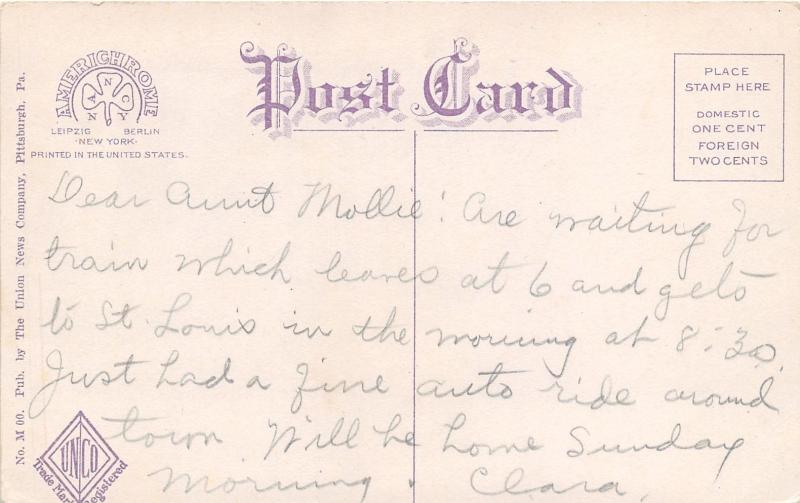 AMERICHROME
A N N C Y
LEIPZIG BERLIN
·NEW YORK·
PRINTED IN THE UNITED STATES.
Post Card
PLACE
STAMP HERE
DOMESTIC
ONE CENT
FOREIGN
TWO CENTS
No. M 00. Pub. by The Union News Company, Pittsburgh, Pa.
Dear Aunt Mollie! Are waiting for
train which leaves at 6 and gets
to St. Louis in the morning at 8:30.
Just had a fine auto ride around
town. Will be home Sunday
morning. Clara.
UNCO
Trade Mark Registered